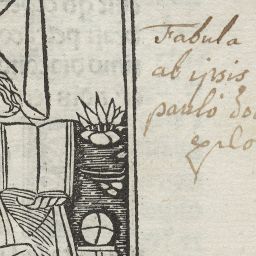 Fabula
ab ipsis
paulo do
explo